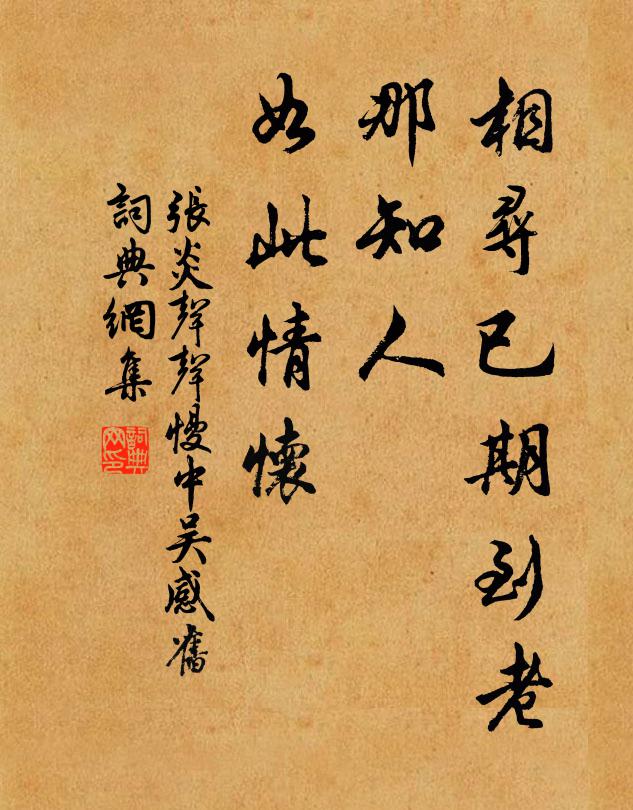 相尋已期到老
那知人
如此情懷
張炎聲聲慢中吳感舊
詞典網集
詞典網印